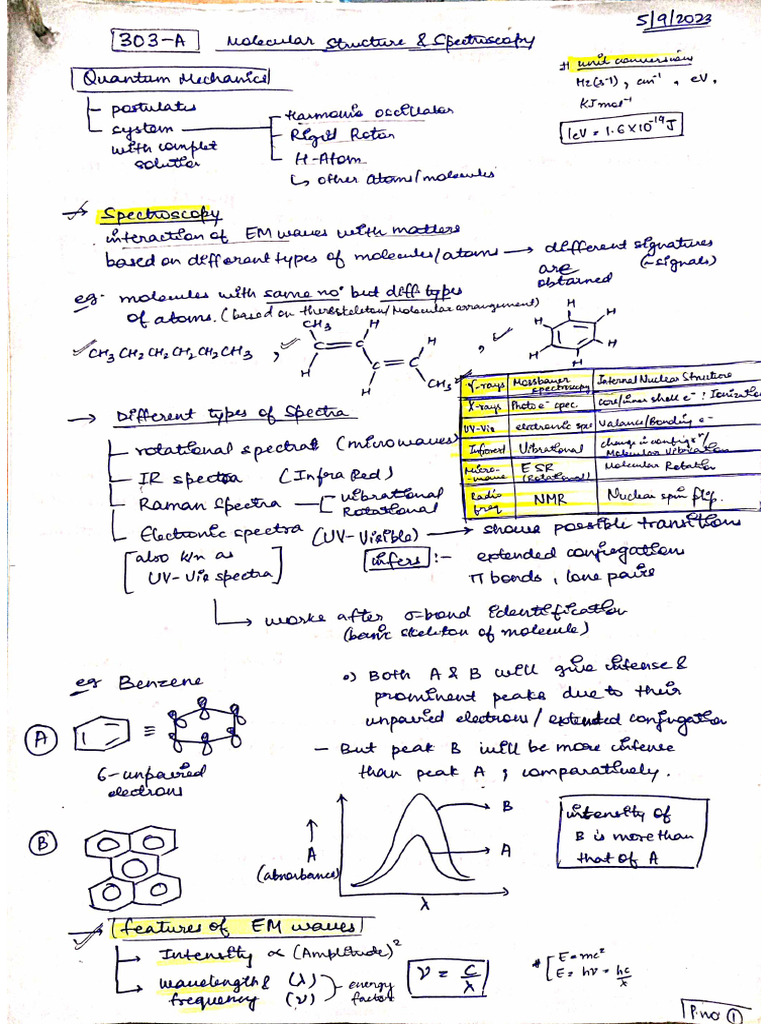 5/9/2023
303-A Molecular Structure & Spectroscopy
# unit conversion
Hz(s⁻¹), cm⁻¹, eV,
KJmol⁻¹
1eV = 1.6×10⁻¹⁹J
Quantum Mechanics
postulates
system
with complet
solution
Harmonic oscillator
Rigid Rotor
H-Atom
↳ other atoms/molecules
→ Spectroscopy
interaction of EM waves with matters
based on different types of molecules/atoms → different signatures
(~signals)
are
obtained
eg- molecules with same no. but diff types
of atoms. (based on there skeleton/Molecular arrangement)
CH₃CH₂CH₂CH₂CH₂CH₃ ,
CH₃ H
C=C H
H C=C
H CH₃
,
H
H H
H H
H
γ-rays Mossbauer spectroscopy Internal Nuclear Structure
X-rays Photo e⁻ spec. core/inner shell e⁻ : Ionization
UV-Vis electronic spec Valance/Bonding e⁻
Infrared Vibrational change in config⁰/Molecular Vibration
Micro-wave ESR (Rotational) Molecular Rotation
Radio freq NMR Nuclear spin flip.
→ Different types of Spectra
rotational spectra (microwaves)
IR spectra (Infra Red)
Raman Spectra
vibrational
Rotational
Electronic spectra (UV-Visible) → shows possible transitions
[also k/n as
UV-Vis spectra]
infers :- extended conjugation
π bonds, lone pairs
↳ works after σ-bond identification
(basic skeleton of molecule)
eg Benzene
A
≡
6-unpaired
electrons
•) Both A & B will give intense &
prominent peaks due to their
unpaired electrons/extended conjugation
- But peak B will be more intense
than peak A, comparatively.
B
↑
A
(absorbance)
B
A
λ
intensity of
B is more than
that of A
→ features of EM waves
→ Intensity ∝ (Amplitude)²
→ wavelength & (λ)
frequency (ν)
energy
factors
ν = c/λ
* E=mc²
E = hν = hc/λ
P.no ①